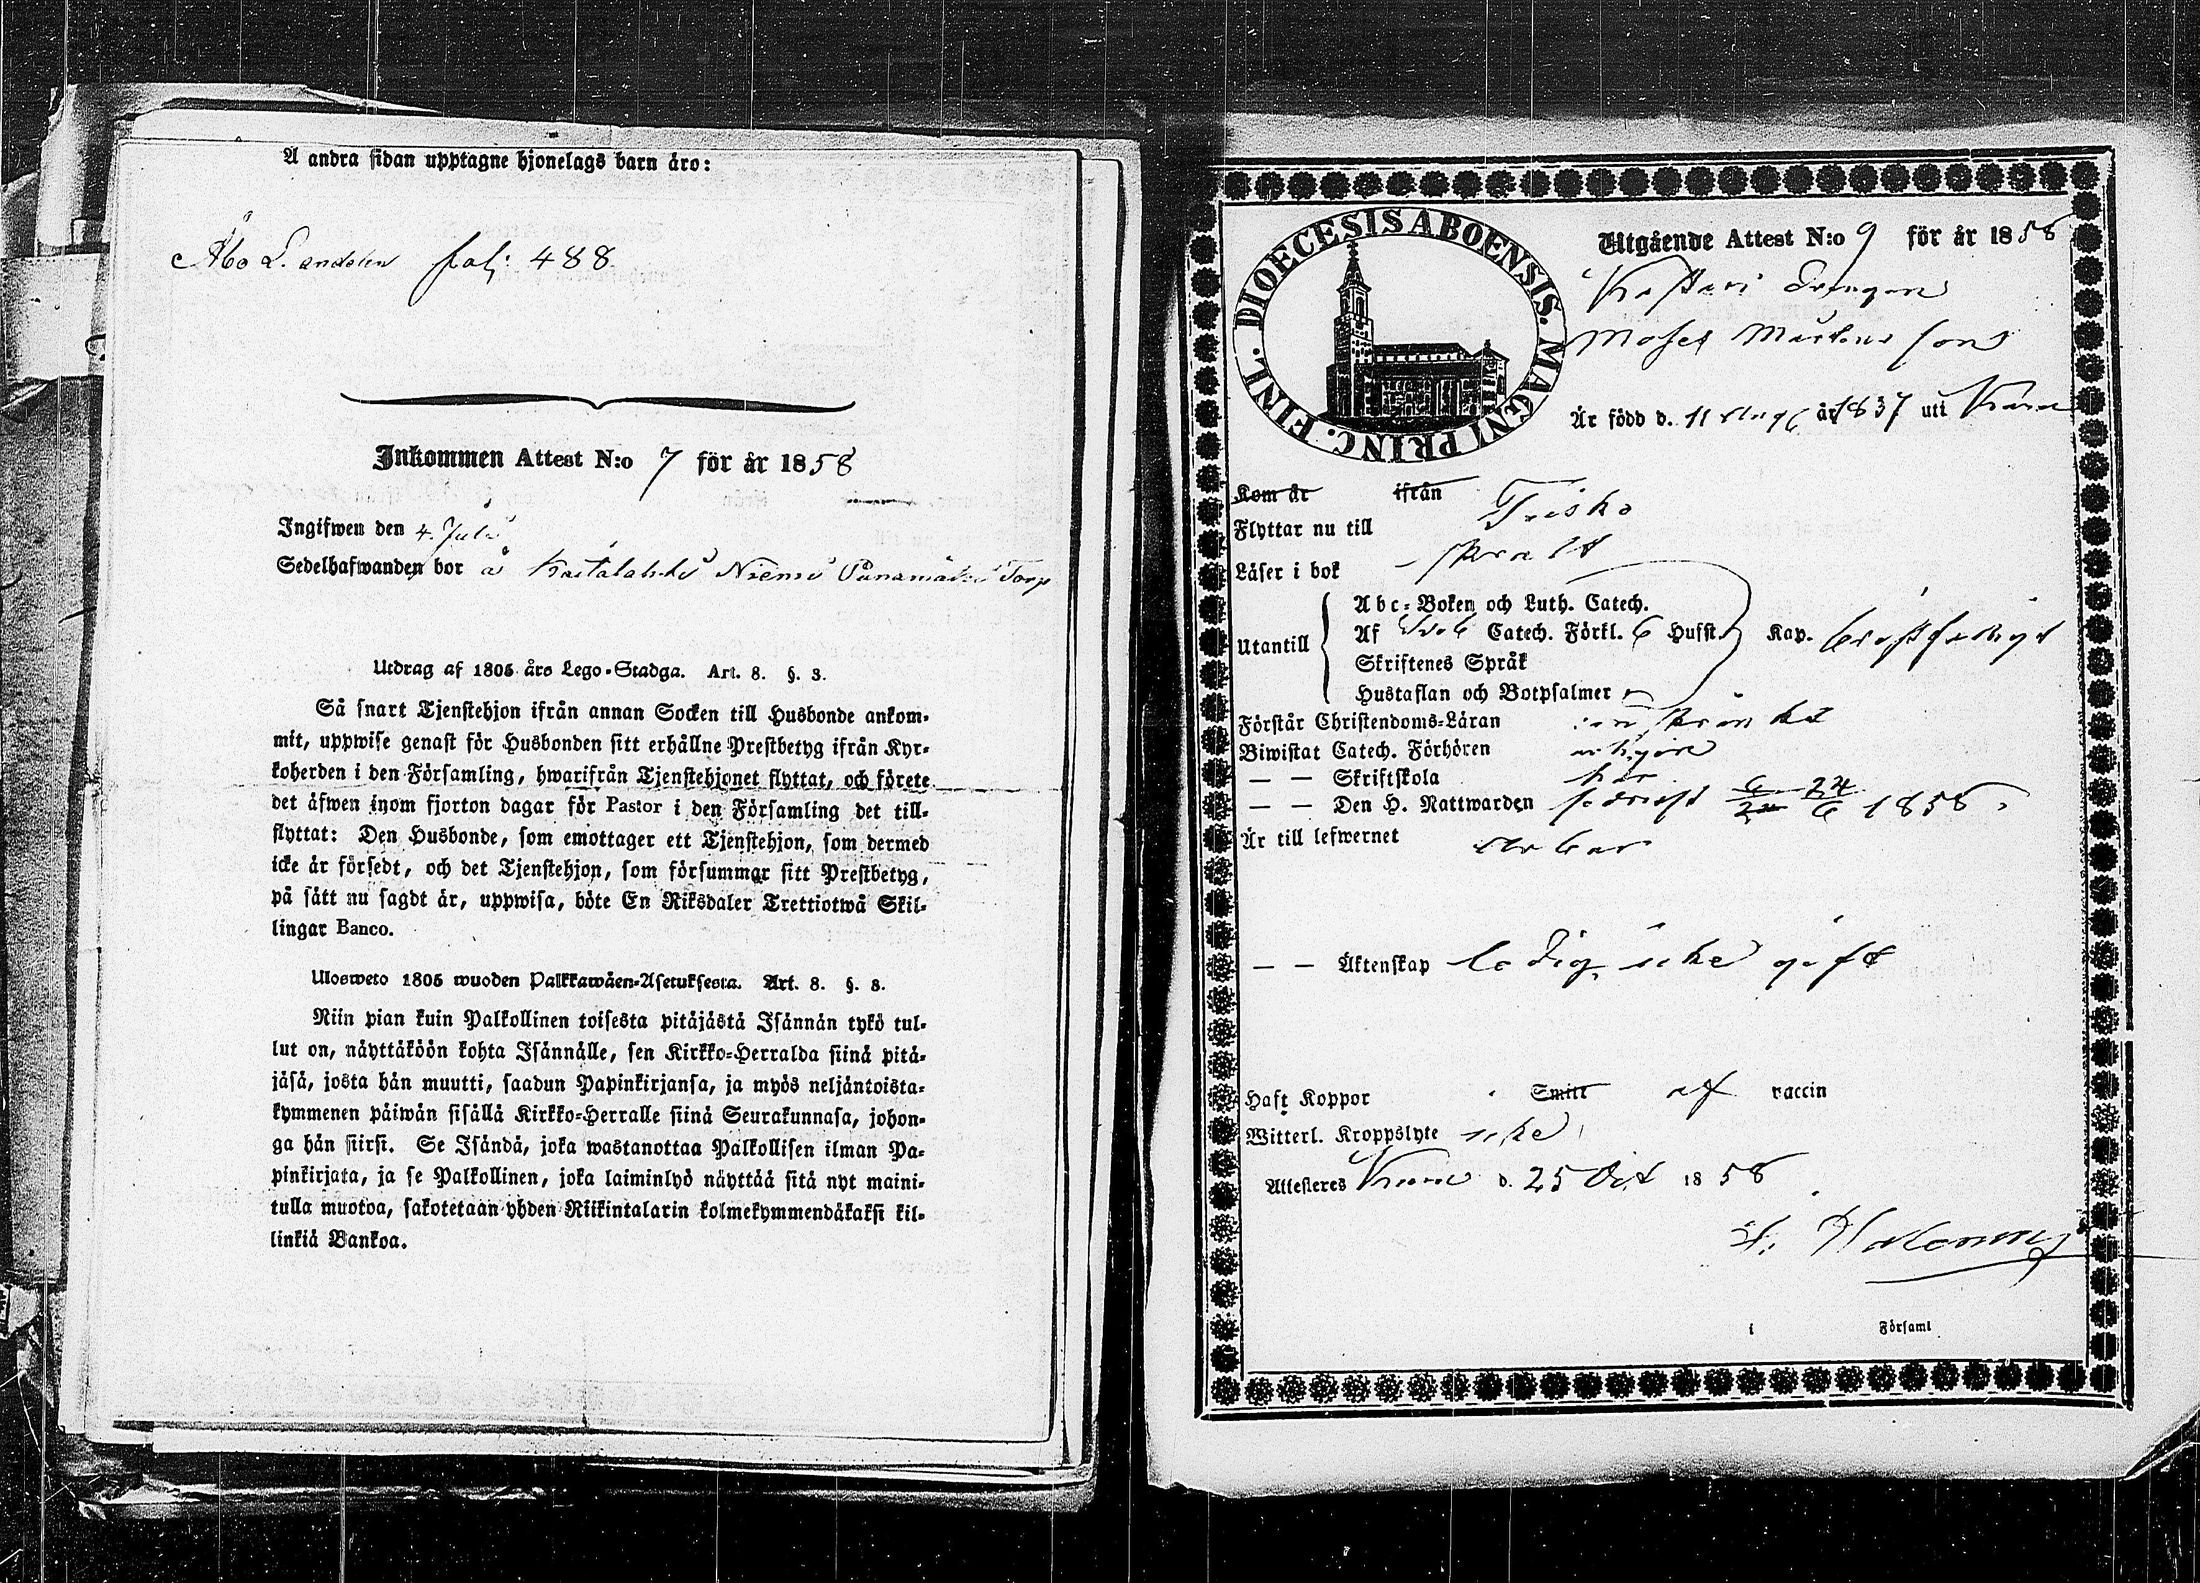 Å andra sidan upptagne hjonelags barn äro:
Åbo L. andelen fol: 488
Inkommen Attest N:o 7 för år 1858
Ingifwen den 4. Juli
Sedelhafwanden bor å Torp
Utdrag af 1805 års Lego-Stadga. Art. 8. §. 3.
Så snart Tjenstehjon ifrån annan Socken till Husbonde ankom-
mit, uppwise genast för Husbonden sitt erhållne Prestbetyg ifrån Kyr-
koherden i den Församling, hwarifrån Tjenstehjonet flyttat, och förete
det äfwen inom fjorton dagar för Pastor i den Församling det till-
flyttat: Den Husbonde, som emottager ett Tjenstehjon, som dermed
icke är försedt, och det Tjenstehjon, som försummar sitt Prestbetyg,
på sätt nu sagdt är, uppwisa, böte En Riksdaler Trettiotwå Skil-
lingar Banco.
Ulosweto 1805 wuoden Palkkawäen-Asetuksesta. Art. 8. §. 3.
Niin pian kuin Palkollinen toisesta pitäjästä Isännän tykö tul-
lut on, näyttäköön kohta Isännälle, sen Kirkko-Herralda siinä pitä-
jäsä, josta hän muutti, saadun Papinkirjansa, ja myös neljäntoista-
kymmenen päiwän sisällä Kirkko-Herralle siinä Seurakunnasa, johon-
ga hän siirsi. Se Isändä, joka wastanottaa Palkollisen ilman Pa-
pinkirjata, ja se Palkollinen, joka laiminlyö näyttää sitä nyt maini-
tulla muotoa, sakotetaan yhden Riikintalarin kolmekymmendäkaksi kil-
linkiä Bankoa.
DIOECESIS ABOENSIS. MAGNI PRINC. FINL.
Utgående Attest N:o 9 för år 1858
Drengen
Moses Mårtens son
Är född d. 11 Aug år 1837 uti
Kom år ifrån
Flyttar nu till Thisko
Läser i bok
Utantill
Abc-Boken och Luth. Catech.
Af Sveb Catech. Förkl. Husst. Kap.
Skriftenes Språk
Hustaflan och Botpsalmer
Förstår Christendoms-Läran
Biwistat Catech. Förhören
— — Skriftskola har
— — Den H. Nattwarden sednast 24/6 1858.
Är till lefwernet
— — Äktenskap ledig, icke gift
Haft Koppor Smitt af vaccin
Witterl. Kroppslyte icke
Attesteres d. 25 Oct 1858
i Församl